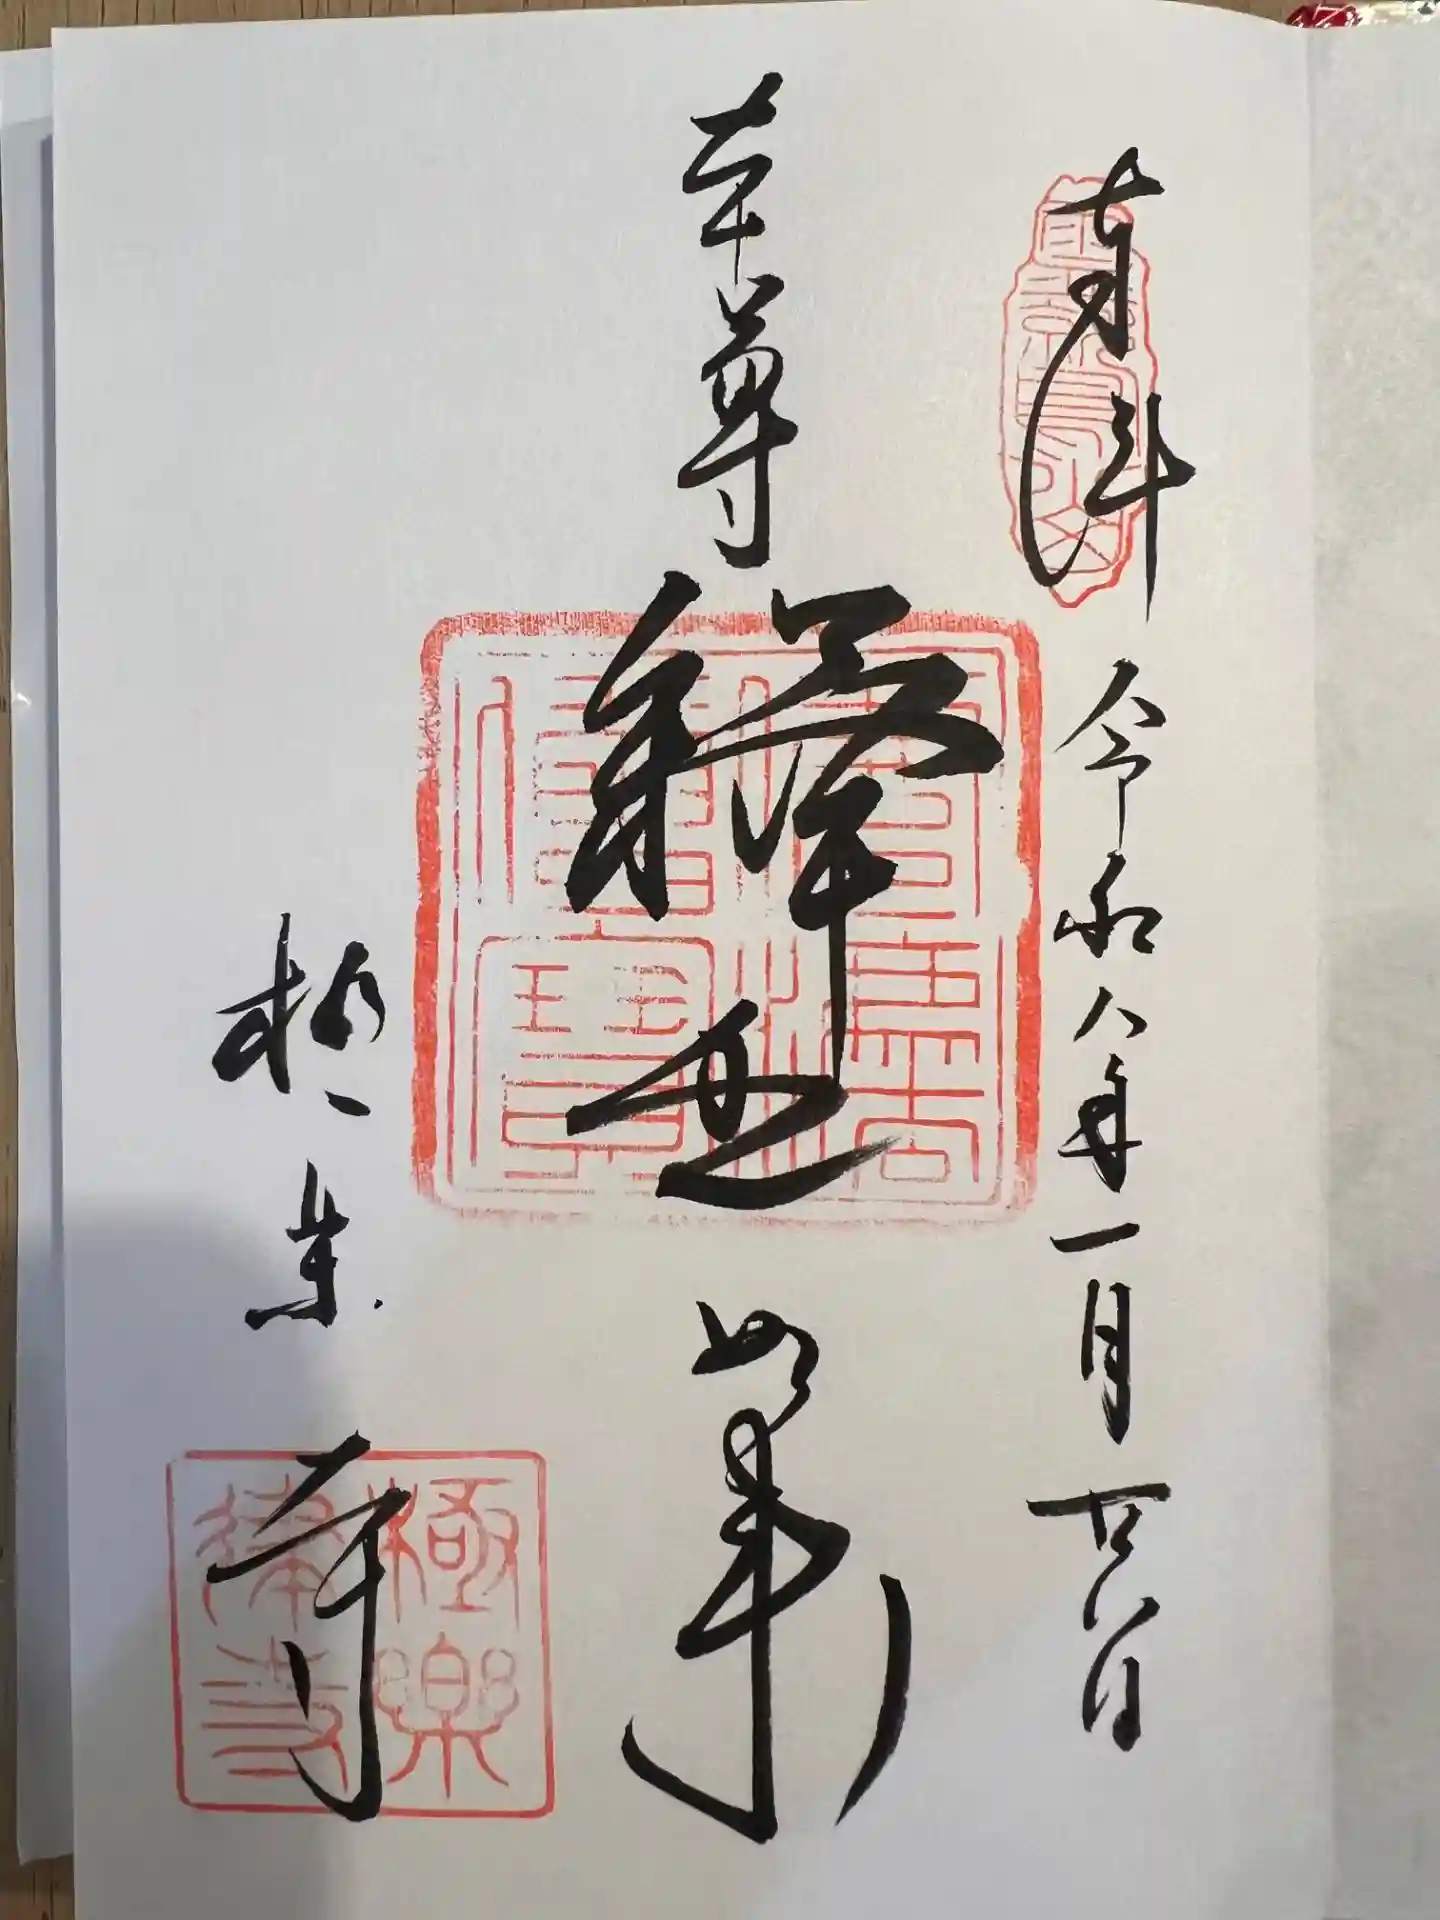 奉拝 令和八年一月廿八日
本尊 釋迦如来
極楽寺
極樂律寺